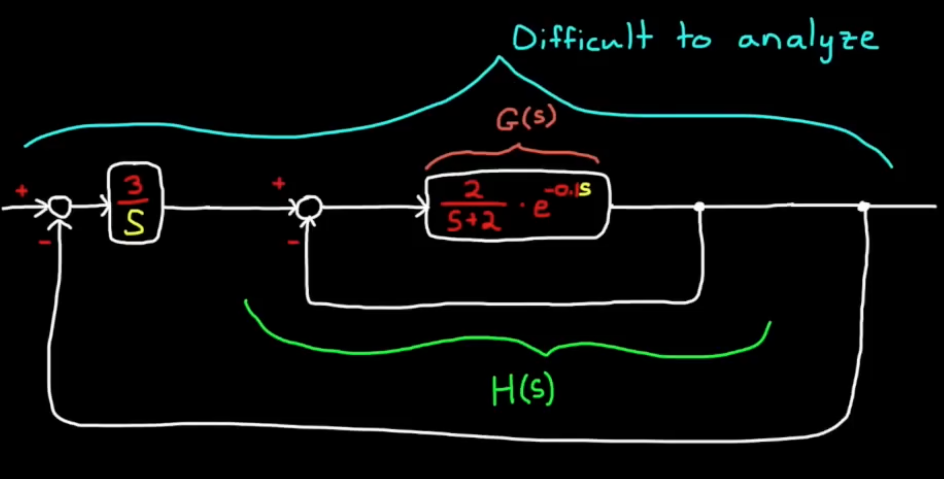 Difficult to analyze
G(s)
+
3/S
+
2/(S+2) · e^-0.1s
-
-
H(s)